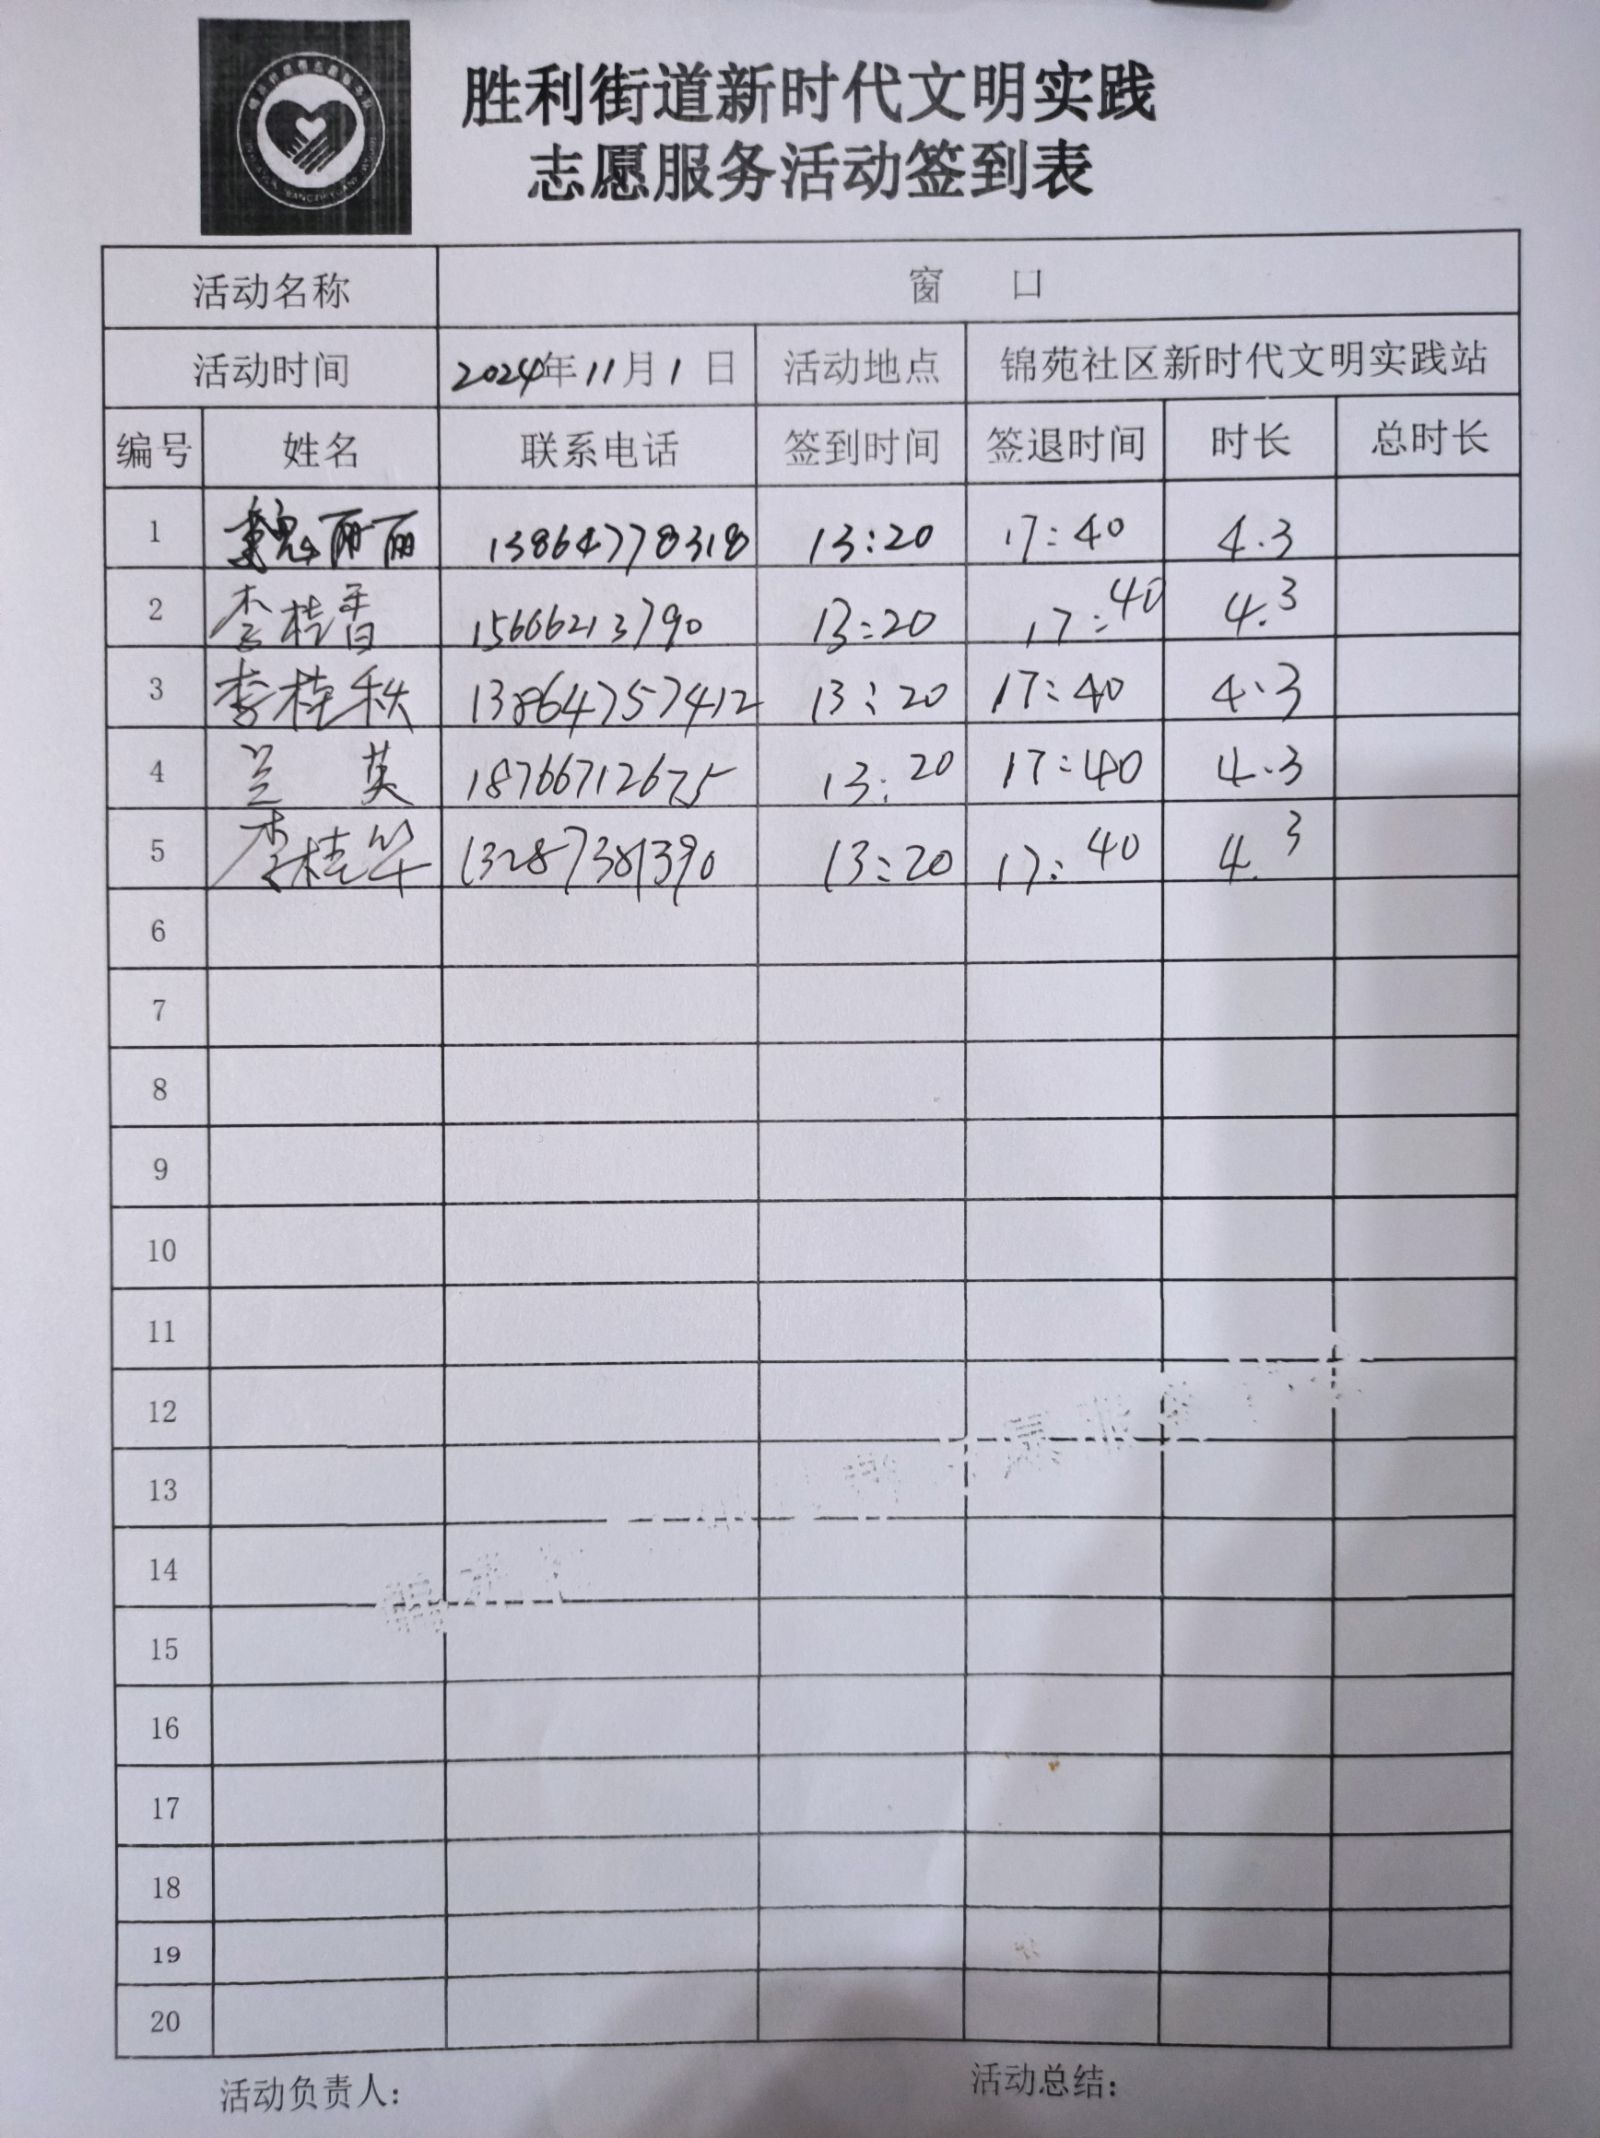 胜利街道新时代文明实践
志愿服务活动签到表
活动名称 窗 口
活动时间 2024年11月1日 活动地点 锦苑社区新时代文明实践站
编号 姓名 联系电话 签到时间 签退时间 时长 总时长
1 魏丽丽 13864778318 13:20 17:40 4.3
2 李桂香 15666213790 13:20 17:40 4.3
3 李桂秋 13864757412 13:20 17:40 4.3
4 兰英 18766712675 13:20 17:40 4.3
5 李桂华 13287381390 13:20 17:40 4.3
6
7
8
9
10
11
12
13
14
15
16
17
18
19
20
活动负责人: 活动总结: